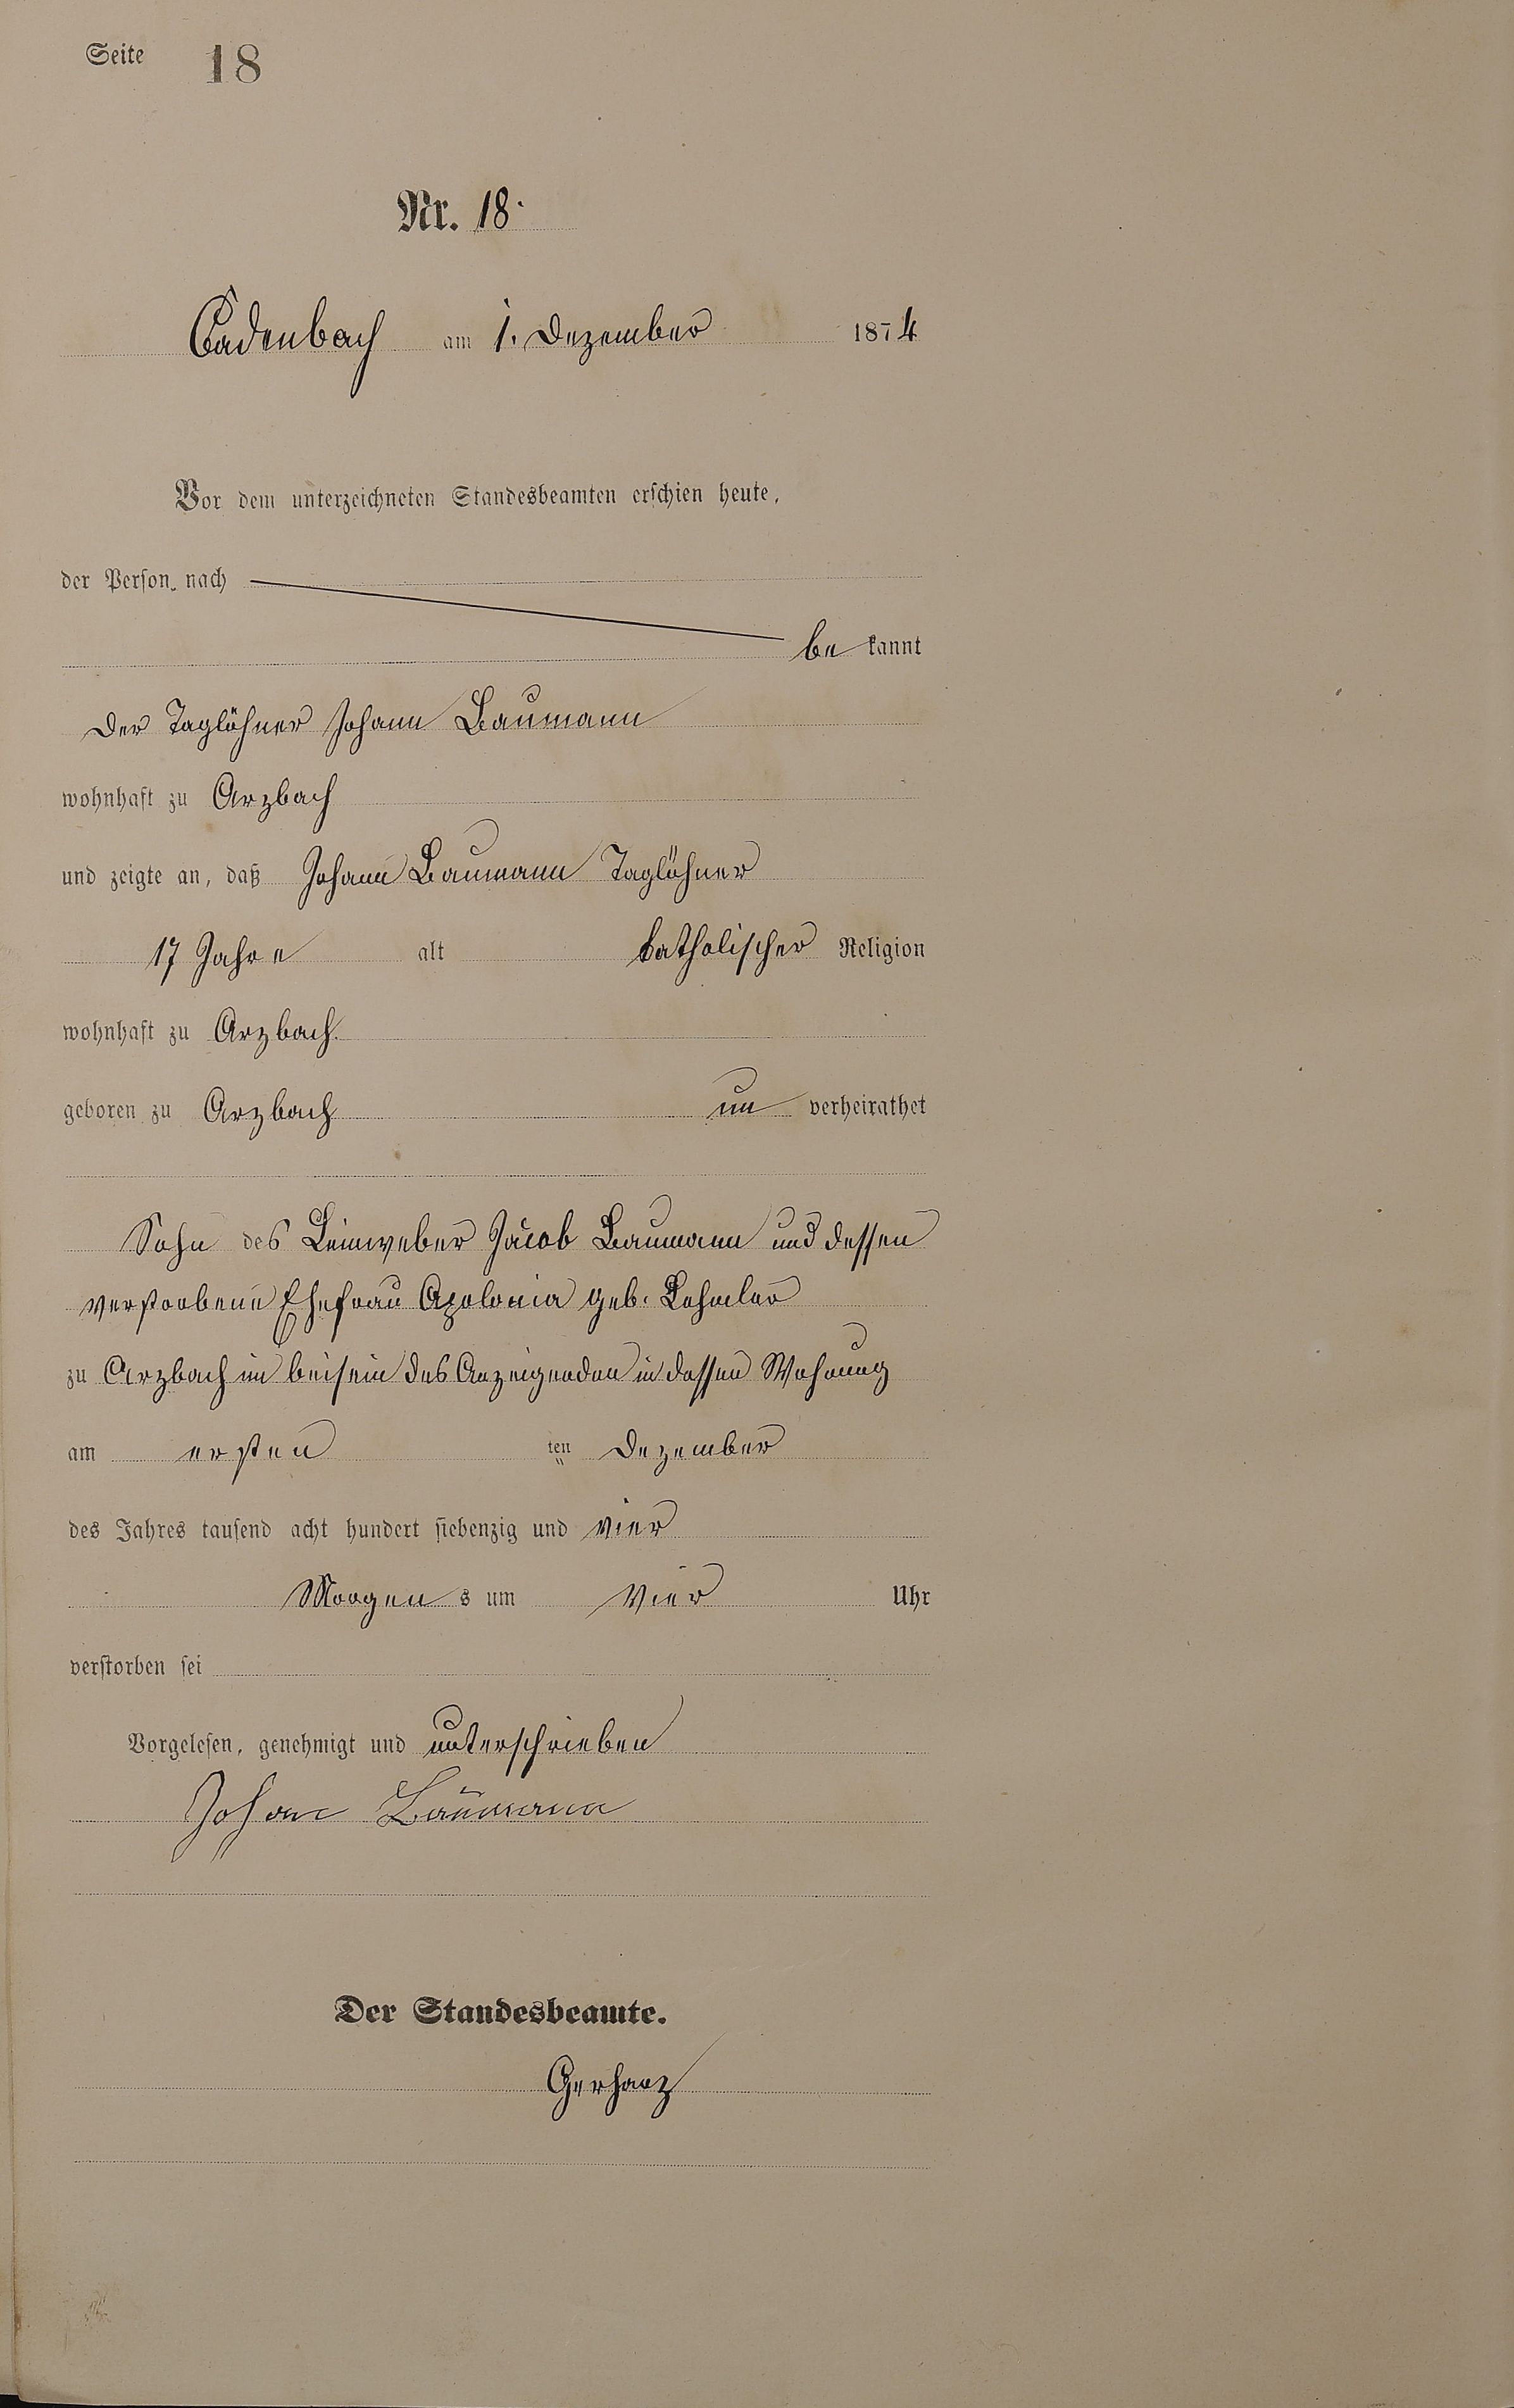 Seite 18
Nr. 18.
Cadenbach am 1. Dezember 1874
Vor dem unterzeichneten Standesbeamten erschien heute,
der Person nach
be kannt
der Taglöhner Johann Baumann
wohnhaft zu Arzbach
und zeigte an, daß Johann Baumann Taglöhner
17 Jahre alt katholischer Religion
wohnhaft zu Arzbach.
geboren zu Arzbach un verheirathet
Sohn des Leinweber Jacob Baumann und dessen
verstorbene Ehefrau Apolonia geb.
zu Arzbach im beisein des Anzeigenden in dessen Wohnung
am ersten ten Dezember
des Jahres tausend acht hundert siebenzig und vier
Morgen s um Vier Uhr
verstorben sei
Vorgelesen, genehmigt und unterschrieben
Johann Baumann
Der Standesbeamte.
Gerharz